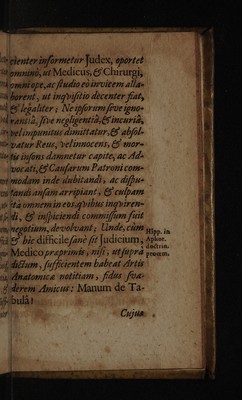 cienter informetur Judex, oportet
omninò, ut Medicus, & Chirurgi,
omni ope, ac studio eò irvicem alla-
borent, ut inqvisitio decenter fiat,
& legaliter; Ne ipsorum sive igno-
rantiâ, sive negligentiâ, & incuriâ,
vel impunitus dimittatur, & absol-
vatur Reus, vel innocens, & mor-
tis insons damnetur capite, ac Ad-
vocati, & Causarum Patroni com-
modam inde dubitandi, ac dispu-
tandi ansam arripiant, & culpam
ita omnem in eos, qvibus inqviren-
di, & inspiciendi commissum fuit
negotium, devolvant; Unde, cùm
& hic difficile sanè sit Judicium,
Medico præprimis, nisi, ut suprà
dictum, sufficientem habeat Artis
Anatomicæ notitiam, fidus sva-
derem Amicus: Manum de Ta-
bulâ!
Hipp. in
Aphor.
proœm.
Cujus